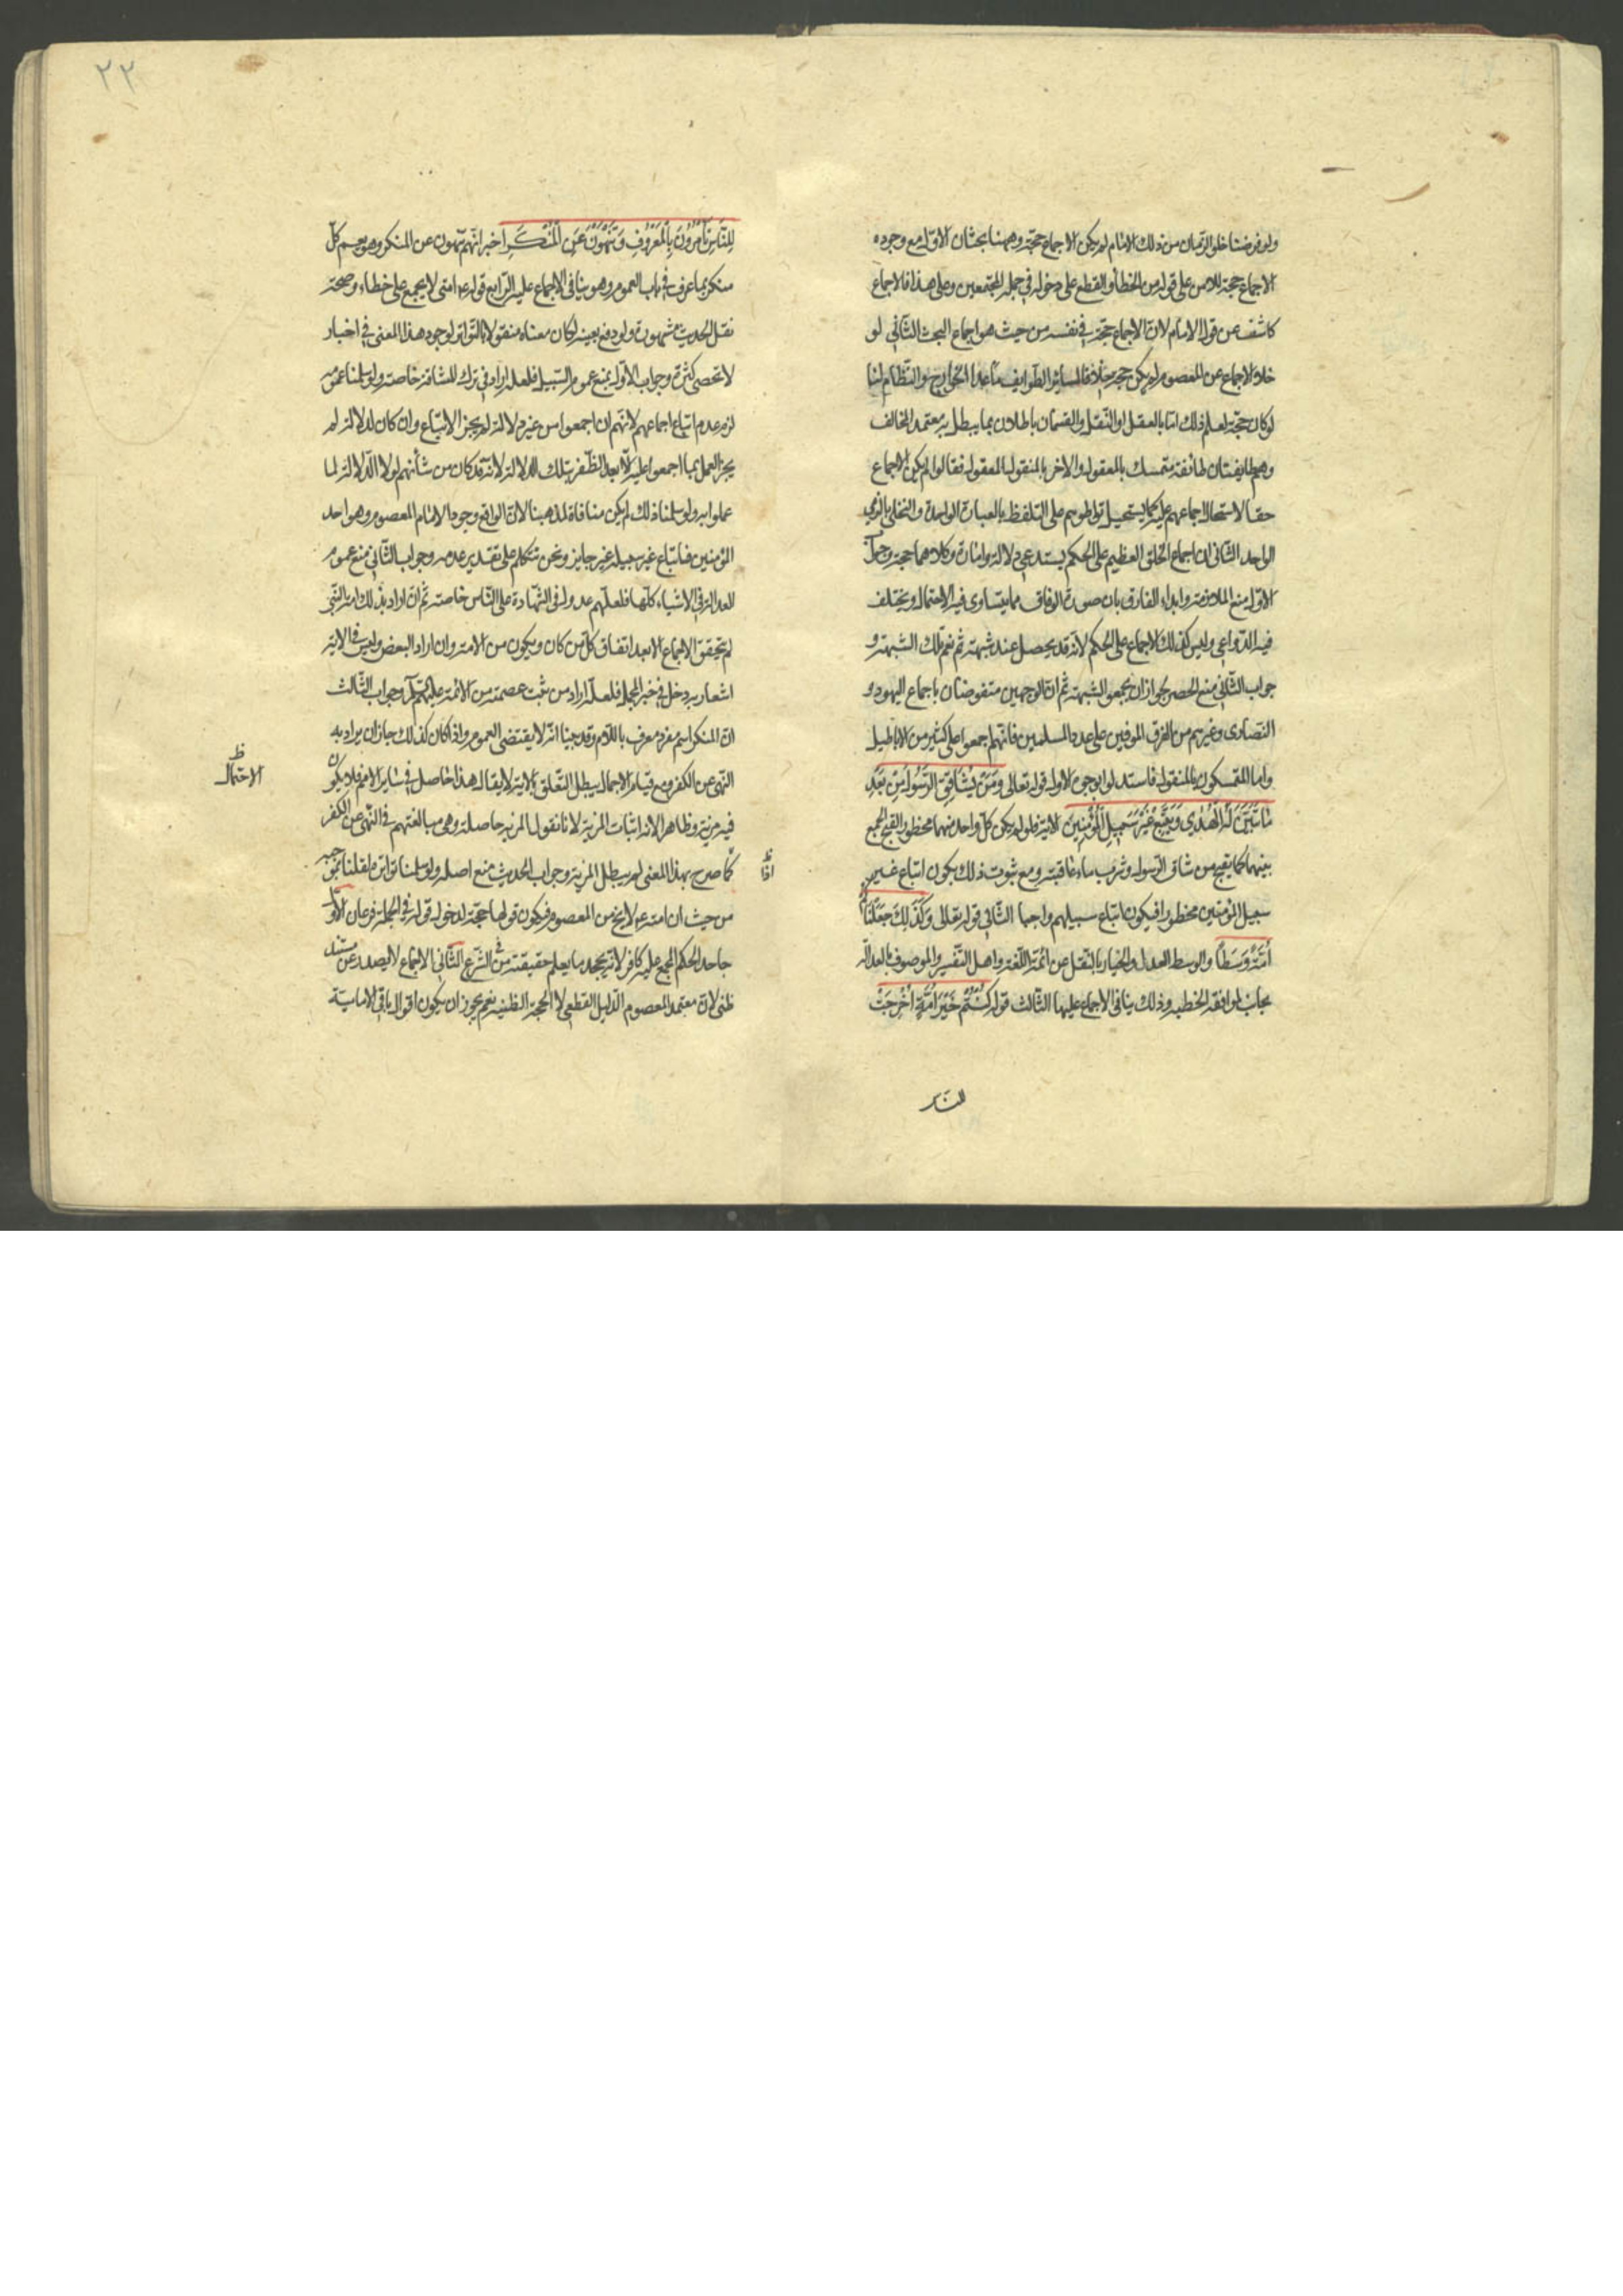 ولو فرضنا خلو الزمان من ذلك الامام لم يكن الاجماع حجة وههنا بحثان الاول مع وجوده
الاجماع حجة للامن على قوله من الخطأ والقطع على دخوله في جملة المجتمعين وعلى هذا فالاجماع
كاشف عن قول الامام لا ان الاجماع حجة في نفسه من حيث هو اجماع البحث الثاني لو
خلا الاجماع عن المعصوم لم يكن حجة خلافا لسائر الطوايف ما عدا الخوارج والنظام لنا
لو كان حجة لعلم ذلك اما بالعقل او النقل والقسمان باطلان بما يبطل به معتمد المخالف
وهم طايفتان طائفة متمسك بالمعقول والاخر بالمنقول بالمعقول فقالوا لو لم يكن الاجماع
حقا لاستحال اجماعهم عليه كما يستحيل تواطوهم على التلفظ بالعبارة الواحدة والتحلي بالزي
الواحد الثاني ان اجماع الخلق العظيم على الحكم يستدعي دلالة او امارة وكلاهما حجة وجواب
الاول منع الملازمة وابداء الفارق بان صورة الوفاق مما يتساوى فيه الاحتمال ويختلف
فيه الدواعي وليس كذلك الاجماع على الحكم لانه قد يحصل عند شبهة ثم تعم تلك الشبهة و
جواب الثاني منع الحصر لجواز ان يجمعوا لشبهة ثم ان الوجهين منقوضان باجماع اليهود و
النصارى وغيرهم من الفرق الموفين على عدد المسلمين فانهم اجمعوا على كثير من الاباطيل
واما المتمسكون بالمنقول فاستدلوا بوجوه الاول قوله تعالى وَمَنْ يُشَاقِقِ الرَّسُولَ مِنْ بَعْدِ
مَا تَبَيَّنَ لَهُ الْهُدٰى وَيَتَّبِعْ غَيْرَ سَبِيلِ الْمُؤْمِنِينَ الاية فلو لم يكن كل واحد منهما محظورا لقبح الجمع
بينهما كما يقبح من شاق الرسول وشرب ماء عاقبته ومع ثبوت ذلك يكون اتباع غير
سبيل المؤمنين محظورا فيكون اتباع سبيلهم واجبا الثاني قوله تعالى وَكَذٰلِكَ جَعَلْنَاكُمْ
أُمَّةً وَسَطًا والوسط العدل والخيار بالنقل عن ائمة اللغة واهل التفسير والموصوف بالعدالة
يجانب لموافقة الخطية وذلك ينافي الاجماع عليها الثالث قوله كُنْتُمْ خَيْرَ أُمَّةٍ أُخْرِجَتْ
للناس
٢٢
لِلنَّاسِ تَأْمُرُونَ بِالْمَعْرُوفِ وَتَنْهَوْنَ عَنِ الْمُنْكَرِ اخبر انهم ينهون عن المنكر وهو يعم كل
منكر بما عرف في باب العموم وهو ينافي الاجماع عليه الرابع قوله ع امتي لا يجمع على خطاء وصحة
نقل الحديث مشهورة ولو دفع بعينه لكان معناه منقولا بالتواتر لوجود هذا المعنى في اخبار
لا تحصى كثرة وجواب الاول بمنع عموم السبيل فلعله اراد في ترك المشاقة خاصة ولو سلمنا عمومه
لزم عدم اتباع اجماعهم لانهم ان اجمعوا من غير دلالة لم يجز الاتباع وان كان لدلالة لم
يجز العمل بما اجمعوا عليه الا بعد الظفر بتلك الدلالة لانه قد كان من شأنهم لولا الدلالة لما
عملوا به ولو سلمنا ذلك لم يكن منافاة لمذهبنا لان الواقع وجود الامام المعصوم وهو احد
المؤمنين فاتباع غير سبيله غير جايز ونحن نتكلم على تقدير عدمه وجواب الثاني منع عموم
العدالة في الاشياء كلها فلعلهم عدول في الشهادة على الناس خاصة ثم ان اراد بذلك امة النبي
لم يتحقق الاجماع الا بعد اتفاق كل من كان ويكون من الامة وان اراد البعض وليس في الاية
اشعار به دخل في خبر المجمل فلعله اراد من ثبت عصمته من الائمة عليهم السلام وجواب الثالث
ان المنكر اسم مفرد معرف باللام وقد بينا انه لا يقتضي العموم واذا كان كذلك جاز ان يراد به
النهي عن الكفر ومع قيام الاجمال يبطل التعلق بالاية لا يقال هذا حاصل في ساير الامم فلا يكون
الاحتمال ظ
فيه مزية وظاهر الاية اثبات المزية لانا نقول المزية حاصلة وهي مبالغتهم في النهي عن الكفر
كما صرح بهذا المعنى لم يبطل المزية وجواب الحديث منع اصله ولو سلمنا تواتره لقلنا بموجبه
اذا ظ
من حيث ان امته ع لا يخ من المعصوم فيكون قولها حجة لدخول قوله في الجملة فرعان الاول
جاحد الحكم المجمع عليه كافر لانه يجحد ما يعلم حقيقته من الشرع الثاني الاجماع لا يصدر عن مستند
ظني لان معتمد المعصوم الدليل القطعي لا الحجة الظنية نعم يجوز ان يكون اقوال باقي الامامية